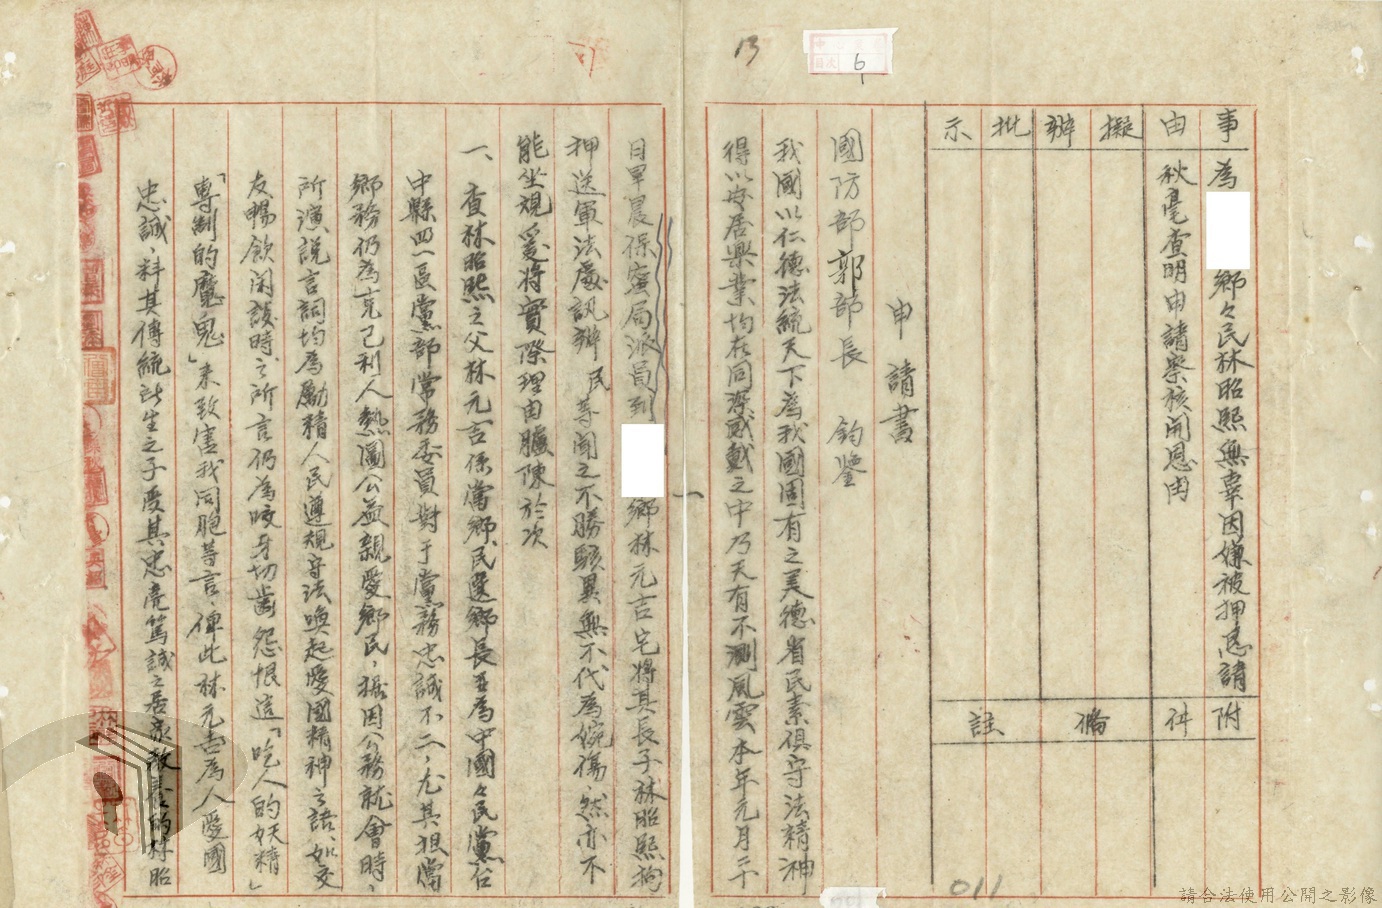 13
6
事由
擬辦
批示
附件
備註
為　　鄉々民林昭熙無辜因嫌被押懇請
秋毫查明申請察核開恩由
申請書
國防部郭部長　鈞鑒
我國以仁德法統天下為我國固有之美德省民素俱守法精神
得以安居樂業均在同深感戴之中乃天有不測風雲本年元月二十
一
日早晨保密局派員到　　鄉林元吉宅將其長子林昭熙拘
押送軍法處訊辦民等聞之不勝駭異無不代為惋傷、然亦不
能坐視爰將實際理由臚陳於次
一、查林昭熙之父林元吉係當鄉民選鄉長并為中國々民黨台
中縣四一區黨部常務委員對于黨務忠誠不二，尤其担當
鄉務仍為克己利人熱圖公益親愛鄉民，據因公務就會時，
所演說言詞均為勵精人民遵規守法喚起愛國精神之語、如交
友暢飲閑談時之所言仍為咬牙切齒怨恨這「吃人的妖精」
「專制的魔鬼」來致害我同胞等言、俾此林元吉為人愛國
忠誠、料其傳統此生之子受其忠亮篤誠之居家教養的林昭
011
請合法使用公開之影像